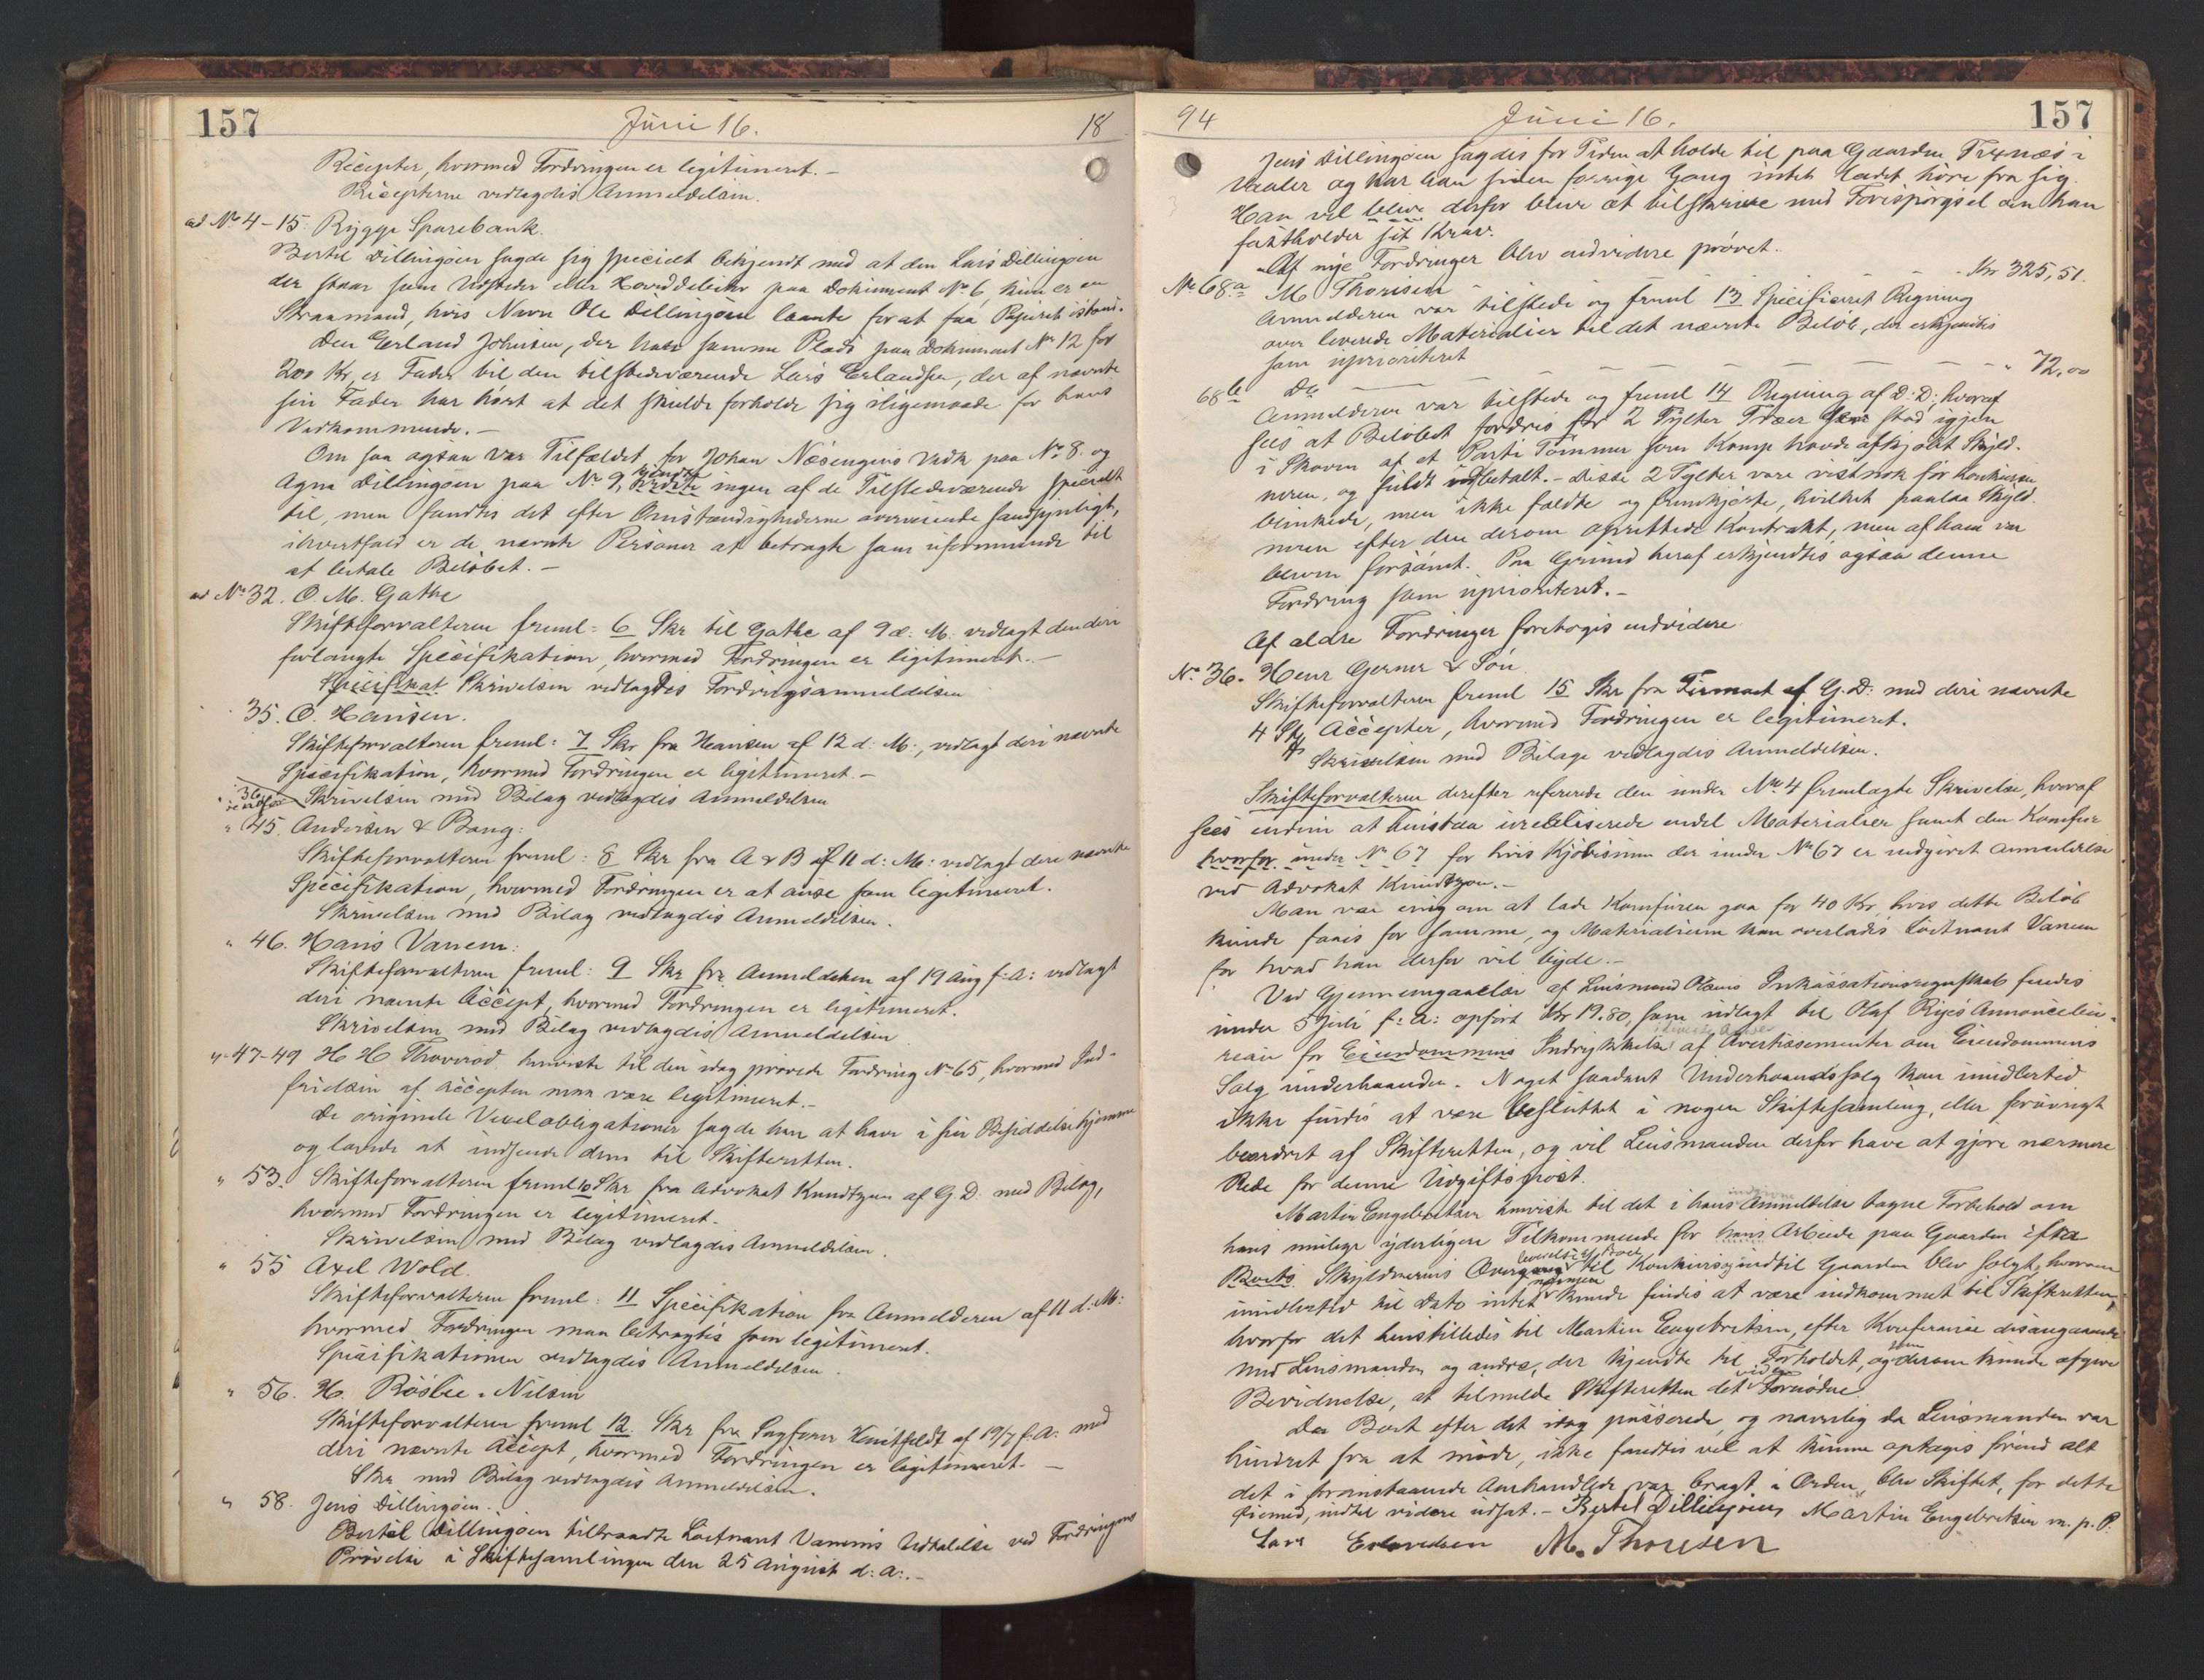 157 Juni 16. 18
Recepter, hvormed Fordringen er legitimeret. –
Recepterne vedlagdes Anmeldelsen.
ad No 4-15. Rygge Sparebank.
Bertel Dillingøen sagde sig specielt bekjendt med at den Lars Dillingøen
der staar som Udsteder eller Hoveddebitor paa Dokument No 6, kun er en
Straamand, hvis Navn Ole Dillingøen laante for at faa Papiret istand.
Den Erland Johnsen, der har samme Plads paa Dokument No 12 for
200 Kr, er Fader til den tilstedeværende Lars Erlandsen, der af nævnte
sin Fader har hørt at det skulde forholde sig iligemaade for hans
Vedkommende. –
Om saa ogsaa var Tilfældet for Johan Næsengens Vedk paa No 8. og
Agna Dillingøen paa No 9, kjendte ingen af de Tilstedeværende specielt
til, men fandtes det efter Omstændighederne overveiende sandsynligt,
ihvertfald er de nævnte Personer at betragte som uformuende til
at betale Beløbet. –
ad No 32. O. M. Gathe
Skifteforvalteren freml: 6 Skr til Gathe af 9 d: M: vedlagt den deri
forlangte Specifikation, hvormed Fordringen er legitimeret. –
Specifikat Skrivelsen vedlagdes Fordringsanmeldelsen
35. O. Hansen.
Skifteforvalteren freml: 7 Skr fra Hansen af 12 d: M:, vedlagt deri nævnte
Specifikation, hvormed Fordringen er legitimeret. –
36 Skrivelsen med Bilag vedlagdes Anmeldelsen
" 45. Andersen & Bang:
Skifteforvalteren freml: 8 Skr fra A & B af 11 d: M: vedlagt deri nævnte
Specifikation, hvormed Fordringen er at anse som legitimeret.
Skrivelsen med Bilag vedlagdes Anmeldelsen.
" 46. Hans Vanem:
Skifteforvalteren freml: 9 Skr fra Anmelderen af 19 Aug f: A: vedlagt
deri nævnte Accept, hvormed Fordringen er legitimeret.
Skrivelsen med Bilag vedlagdes Anmeldelsen
" 47-49 H H Thovsrød henviste til den idag prøvede Fordring No 65, hvormed Ind-
frielsen af Accepten maa være legitimeret. –
De originale Vexelobligationer sagde han at have i sin Besiddelse hjemme
og lovede at indsende dem til Skifteretten.
" 53. Skifteforvalteren freml 10 Skr fra Advokat Knudtzon af G. D. med Bilag,
hvormed Fordringen er legitimeret.
Skrivelsen med Bilag vedlagdes Anmeldelsen.
" 55 Axel Wold.
Skifteforvalteren freml: 11 Specifikation fra Anmelderen af 11 d: M:
hvormed Fordringen maa betragtes som legitimeret.
Specifikationen vedlagdes Anmeldelsen.
" 56. H. Røsbæ-Nilsen
Skifteforvalteren freml 12. Skr fra Sagfører Huitfeldt af 19/7 f. A. med
deri nævnte Accept, hvormed Fordringen er legitimeret. –
Skr med Bilag vedlagdes Anmeldelsen.
" 58. Jens Dillingøen.
Bertel Dillingøen tiltraadte Løitnant Vanems Udtalelse ved Fordringens
Prøvelse i Skiftesamlingen den 25 August d: A:. –
94 Juni 16. 157
Jens Dillingøen sagdes for Tiden at holde til paa Gaarden Trænæs i
Vaaler og har han siden forrige Gang intet ladet høre fra sig.
Han vil blive derfor blive at tilskrive med Forespørgsel om han
fastholder sit Krav.
Af nye Fordringer blev endvidere prøvet.
No 68.a M Thoresen Kr 325,51.
Anmelderen var tilstede og freml 13 Specificeret Regning
over leverede Materialier til det nævnte Beløb, der erkjendtes
som uprioriteret
68b Do — — — " 72,00
Anmelderen var tilstede og freml 14 Regning af D: D:, hvoraf
sees at Beløbet fordres for 2 Tylter Træer som stod igjen
i Skoven af et Parti Tømmer som Komp havde afkjøbt Skyld-
neren, og fuldt udbetalt. – Disse 2 Tylter vare vistnok før Konkursen
blinkede, men ikke fældte og fremkjørte, hvilket paalaa Skyld-
neren efter den derom oprettede Kontrakt, men af ham var
bleven forsømt. Paa Grund heraf erkjendtes ogsaa denne
Fordring som uprioriteret. –
Af ældre Fordringer foretoges endvidere
No 36. Henr Gerner & Søn
Skifteforvalteren freml 15 Skr fra Firmaet af G. D: med deri nævnte
4 Stk Accepter, hvormed Fordringen er legitimeret.
Skrivelsen med Bilage vedlagdes Anmeldelsen.
Skifteforvalteren derefter refererede den under No 4 fremlagte Skrivelse, hvoraf
sees endnu at henstaa urealiserede endel Materialier samt den Komfur
hvorfor under No 67 for hvis Kjøbesum der under No 67 er indgivet Anmeldelse
ved Advokat Knudtzon. –
Man var enig om at lade Komfuren gaa for 40 Kr, hvis dette Beløb
kunde faaes for samme, og Materialierne kan overlades Løitnant Vanem
for hvad han derfor vil byde. –
Ved Gjennemgaaelse af Lensmand Olsens Inkassationsregnskab findes
under 5 Juli f: A: opført Kr 19.80, som udlagt til Olaf Ryes Annoncebu-
reau for Eiendommens Indrykkelse af Avertissementer om Eiendommens
Salg underhaanden. Noget saadant Underhaandssalg kan imidlertid
ikke findes at være besluttet i nogen Skiftesamling, eller forøvrigt
beordret af Skifteretten, og vil Lensmanden derfor have at gjøre nærmere
Rede for denne Udgiftspost.
Martin Engebretsen henviste til det i hans Anmeldelse tagne Forbehold om
hans mulige yderligere Tilkommende for hans Arbeide paa Gaarden efter
Boets Skyldnerens Overgang til Konkurs indtil Gaarden blev solgt, hvorom
imidlertid til Dato intet nærmere kunde findes at være indkommet til Skifteretten,
hvorfor det henstilledes til Martin Engebretsen, efter Konference desangaaende
med Lensmanden og andre, der kjendte til Forholdet, og som derom kunde afgive
Bevidnelse, at tilmelde Skifteretten det videre Fornødne.
Da Boet efter det idag passerede, og navnlig da Lensmanden var
hindret fra at møde, ikke fandtes vel at kunne optages førend alt
det i foranstaaende Omhandlede var bragt i Orden, blev Skiftet, for dette
Øiemed, indtil videre udsat. – Bertel Dillingøens Martin Engebretsen m. p. P.
Lars Erlandsen M. Thoresen